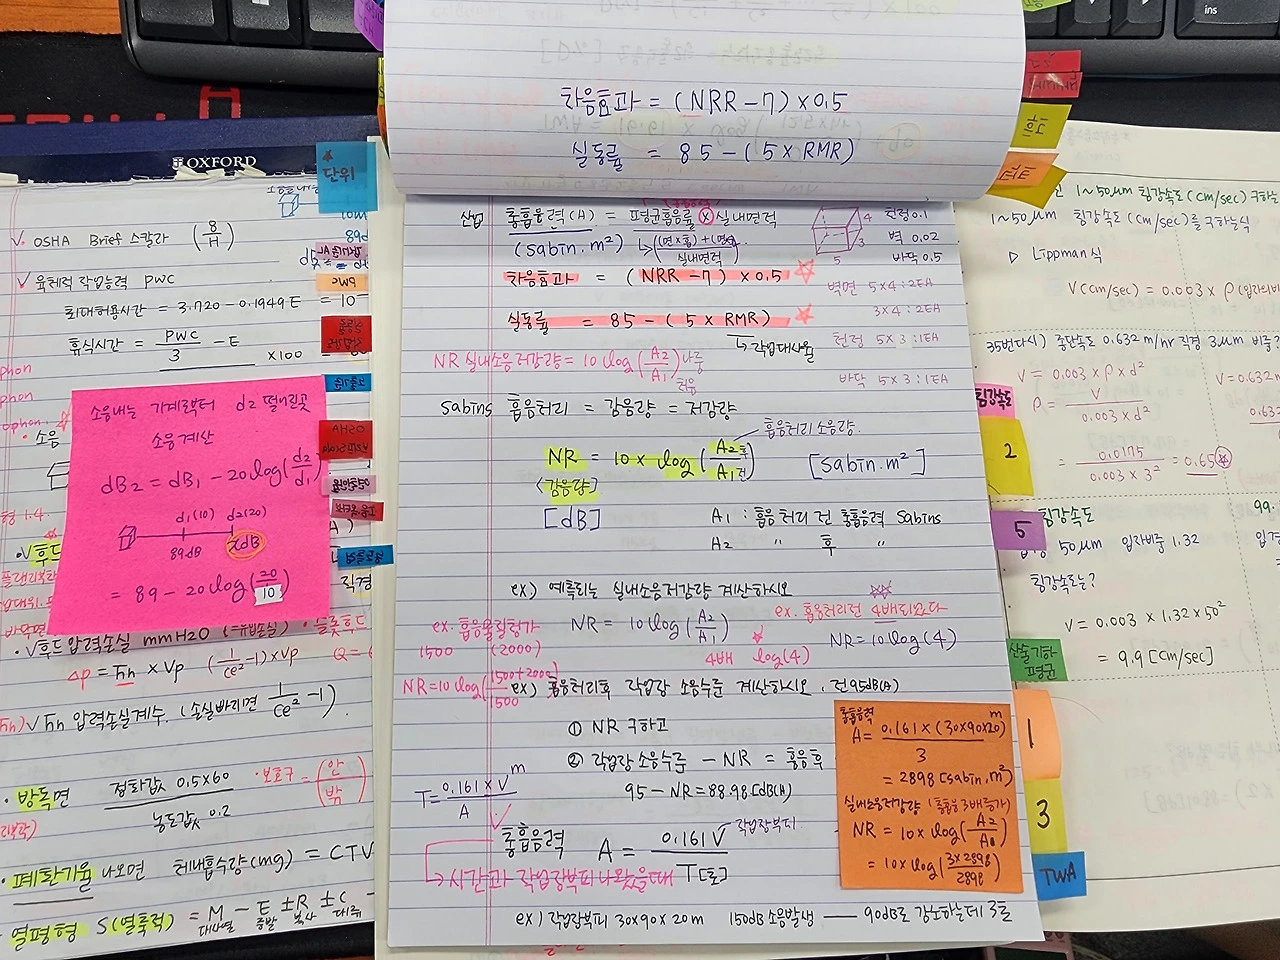 차음효과 = (NRR - 7) × 0.5
실동률 = 85 - (5 × RMR)
OXFORD
단위
ins
√ OSHA Brief 스칼라 (8/H)
√ 육체적 작업능력 PWC
최대허용시간 = 3.720 - 0.1949E
휴식시간 = PWC/3 - E ×100
phon
phon
소음내는 기계로부터 d2 떨어진곳
소음계산
dB2 = dB1 - 20log(d2/d1)
d1(10) d2(20)
89dB xdB
= 89 - 20log(20/10)
√후드 압력손실 mmH2O (=유입손실) · 슬롯후드
△p = Fn × Vp (1/Ce²-1)×Vp
√Fn 압력손실계수. (손실바리면 1/Ce² -1)
· 방독면 정화값 0.5×60 / 농도값 0.2 · 보호구 = (안/밖)
· 폐환기율 나오면 체내흡수량(mg) = CTV
· 열평형 S(열축적) = M - E ± R ± C
대사열 증발 복사 대류
산업 총흡음력(A) = 평균흡음률 × 실내면적
(sabin.m²) ↳ (면×흡)+(면×흡) / 실내면적
4
3
5
천정 0.1
벽 0.02
바닥 0.5
차음효과 = (NRR - 7) × 0.5 ☆
벽면 5×4 : 2EA
3×4 : 2EA
실동률 = 85 - (5 × RMR) ☆
↳ 작업대사율
천정 5×3 : 1EA
바닥 5×3 : 1EA
NR 실내소음저감량 = 10log(A2/A1) 나중 처음
Sabins 흡음처리 = 감음량 = 저감량
흡음처리 소음량.
NR = 10 × log(A2후/A1전) [sabin.m²]
<감음량>
[dB] A1 : 흡음처리 전 총흡음력 Sabins
A2 " 후 "
ex) 예측되는 실내소음저감량 계산하시오
ex. 흡음물질첨가
1500 (2000)
NR = 10log(A2/A1)
4배 log(4)
ex. 흡음처리전 4배되었다
NR = 10log(4)
NR=10log(1500+2000/1500)
ex) 흡음처리후 작업장 소음수준 계산하시오. 전95dB(A)
① NR 구하고
② 작업장소음수준 - NR = 흡음후
95 - NR = 88.98[dB(A)]
T = 0.161 × V / A m
총흡음력 A = 0.161V / T[초] 작업장부피
→ 시간과 작업장부피 나왔을때
ex) 작업장부피 30×90×20m 150dB 소음발생 — 90dB로 감소하는데 3초
총흡음력
A = 0.161×(30×90×20) / 3 m
= 2898[sabin.m²]
실내소음저감량 (총흡음 3배증가)
NR = 10×log(A2/A1)
= 10×log(3×2898/2898)
1~50μm 침강속도(cm/sec) 구하는
1~50μm 침강속도(cm/sec)를 구하는식
▷ Lippman식
V(cm/sec) = 0.003 × ρ(입자의비
35번다시) 종단속도 0.632 m/hr 직경 3μm 비중?
V = 0.003 × ρ × d²
V = 0.632m
ρ = V / 0.003 × d²
= 0.0175 / 0.003 × 3² = 0.65
침강속도
2
5
침강속도
50μm 입자비중 1.32
침강속도는?
V = 0.003 × 1.32 × 50²
= 9.9 [cm/sec]
산술기하
평균
1
3
TWA